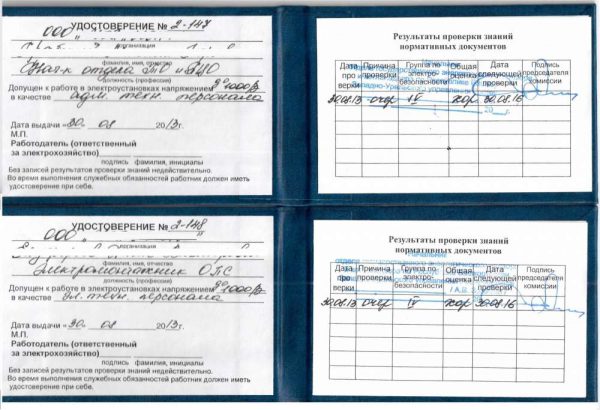 УДОСТОВЕРЕНИЕ № 2-147
ООО
организация
фамилия, имя, отчество
отдела
должность (профессия)
Допущен к работе в электроустановках напряжением до 1000 В
в качестве адм. техн. персонала
Дата выдачи «30. 08 2013г.
М.П.
Работодатель (ответственный
за электрохозяйство)
подпись фамилия, инициалы
Без записей результатов проверки знаний недействительно.
Во время выполнения служебных обязанностей работник должен иметь
удостоверение при себе.
Результаты проверки знаний
нормативных документов
Дата проверки Причина проверки Группа по электробезопасности Общая оценка Дата следующей проверки Подпись председателя комиссии
30.08.13 очер IV хор 30.08.16
УДОСТОВЕРЕНИЕ № 2-148
ООО
организация
фамилия, имя, отчество
Электромонтажник ОПС
должность (профессия)
Допущен к работе в электроустановках напряжением до 1000 В
в качестве эл. техн. персонала
Дата выдачи «30. 08 2013г.
М.П.
Работодатель (ответственный
за электрохозяйство)
подпись фамилия, инициалы
Без записей результатов проверки знаний недействительно.
Во время выполнения служебных обязанностей работник должен иметь
удостоверение при себе.
Результаты проверки знаний
нормативных документов
Дата проверки Причина проверки Группа по электробезопасности Общая оценка Дата следующей проверки Подпись председателя комиссии
30.08.13 очер IV хор 30.08.16